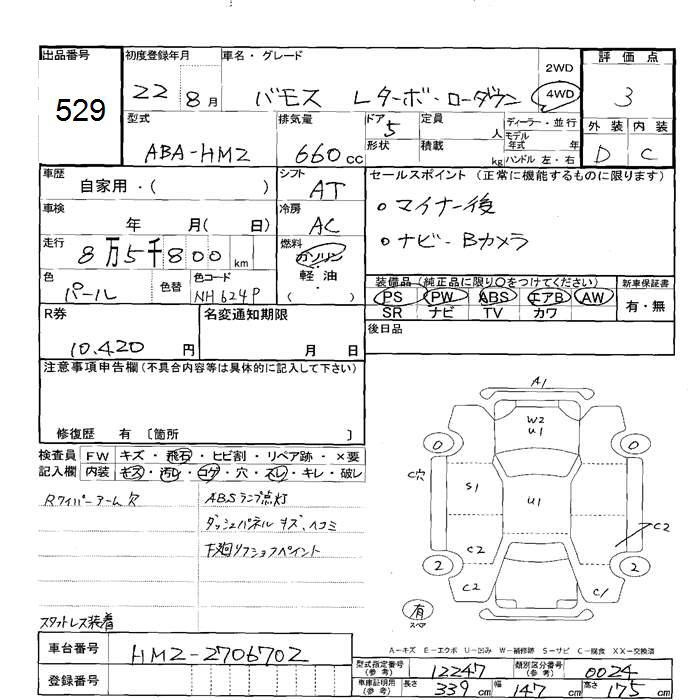 出品番号 初度登録年月 車名・グレード 評価点
529 22年8月 バモス Lターボ・ローダウン 2WD 4WD 3
型式 排気量 ドア 5 定員 人 ディーラー・並行 外装 内装
ABA-HM2 660cc 形状 積載 kg モデル年式 年 ハンドル 左・右 D C
車歴 シフト セールスポイント(正常に機能するものに限ります)
自家用・( ) AT
車検 冷房 ○マイナー後
年 月( 日) AC
走行 8万5千800km 燃料 ○ナビ・Bカメラ
ガソリン
色 色替 色コード 軽油 装備品(純正品に限り○をつけてください) 新車保証書
パール NH624P ( ) PS PW ABS エアB AW 有・無
SR ナビ TV カワ
R券 名変通知期限 後日品
10,420円 月 日
注意事項申告欄(不具合内容等は具体的に記入して下さい)
修復歴 有 〔箇所 〕
検査員 FW キズ・飛石・ヒビ割・リペア跡・×要
記入欄 内装 キズ・汚レ・コゲ・穴・スレ・キレ・破レ
Rワイパーアーム欠 ABSランプ点灯
ダッシュパネルキズ、ヘコミ
下廻リフショフペイント
スタットレス装着
A1
W2
U1
0 0
C穴
S1 U1
C2
C2
2 2
C2 C1
有
スペア
A-キズ E-エクボ U-凹み W-補修跡 S-サビ C-腐食 XX-交換済
車台番号 HM2-2706702
型式指定番号(参考) 12247 類別区分番号(参考) 0024
登録番号 車庫証明用(参考) 長さ 339cm 幅 147cm 高さ 175cm